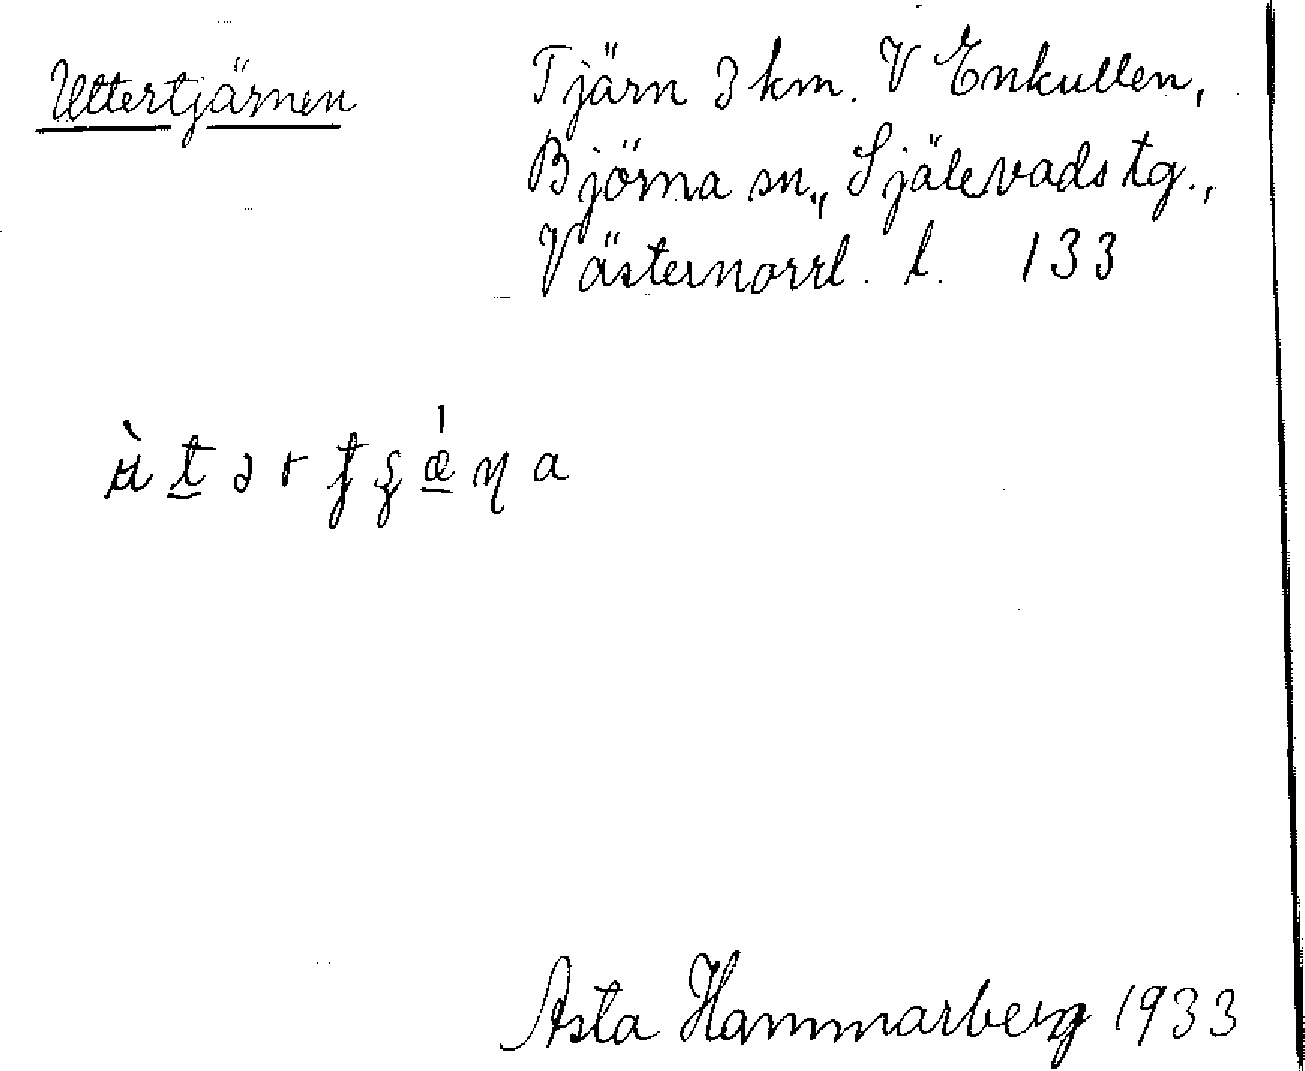 Uttertjärnen
Tjärn 3 km. V Enkullen,
Björna sn., Själevads tg.,
Västernorrl. l. 133
Asta Hammarberg 1933